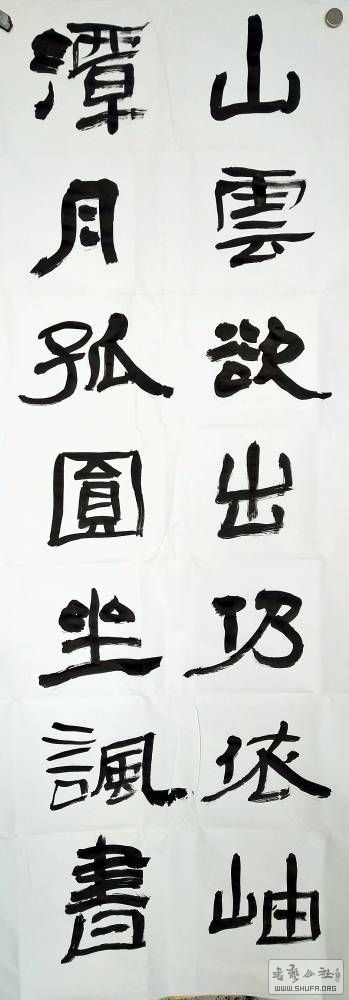 山雲欲出仍依岫
潭月孤圓坐諷書
WWW.SHUFA.ORG